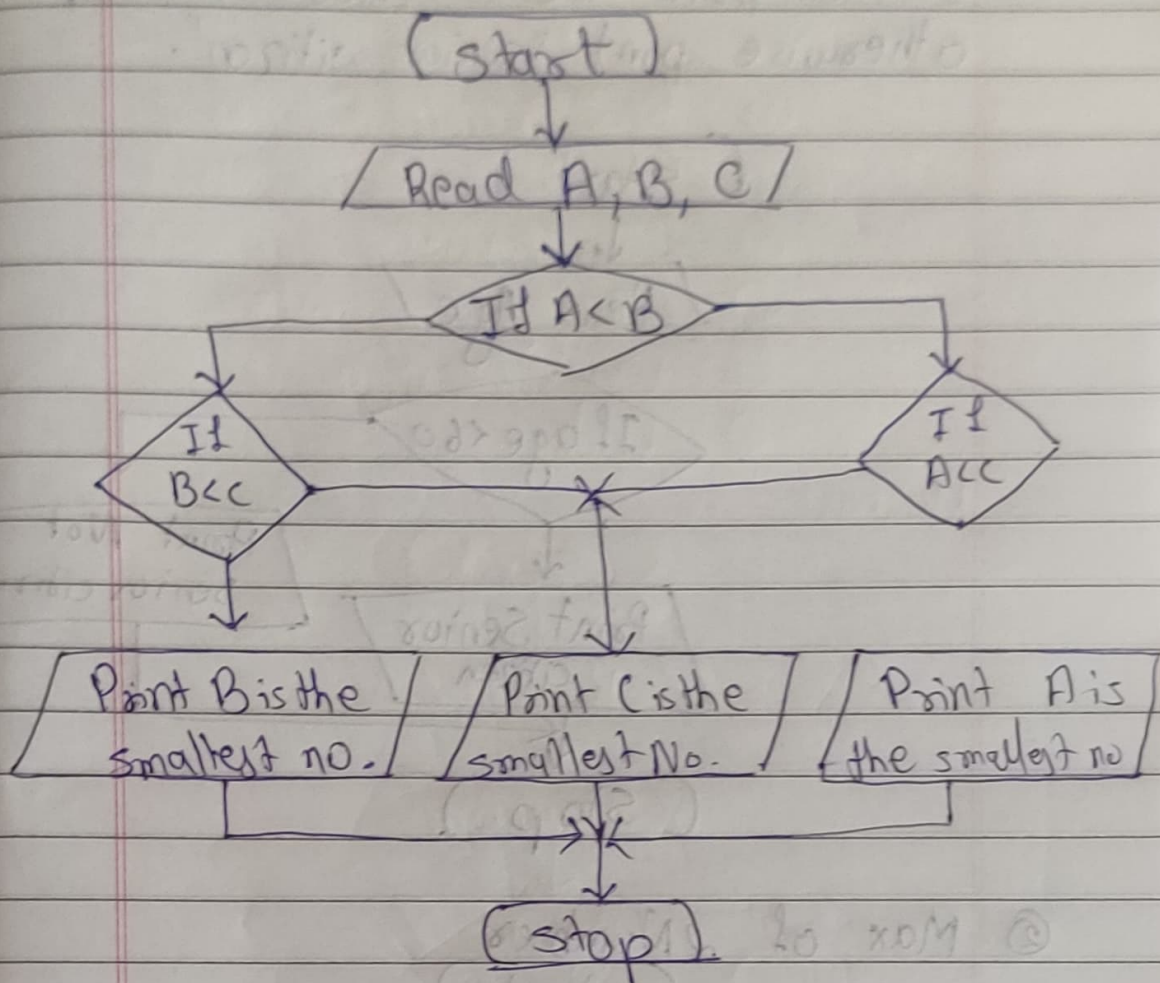 Start
Read A, B, C
If A<B
If
B<C
If
A<C
Print B is the
smallest no.
Print C is the
smallest No.
Print A is
the smallest no
stop